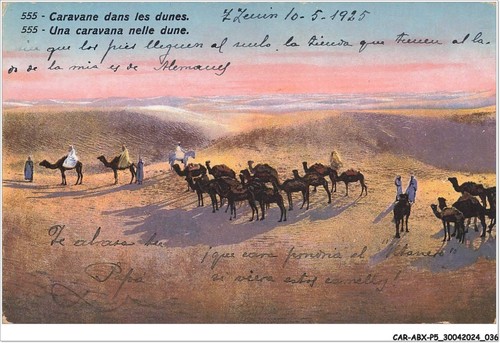 555 - Caravane dans les dunes.
555 - Una caravana nelle dune.
10-5-1925
que los pies lleguen al suelo. la tienda que tienen al la-
do de la mia es de Alemanes
Te abraza tu
Papá
¡que cara pondria el
si viera estos camellos!
CAR-ABX-P5_30042024_036